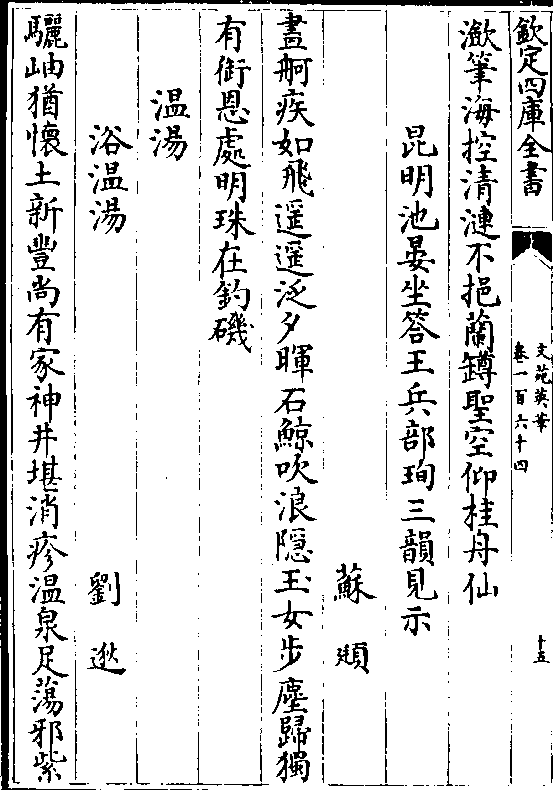 欽定四庫全書
文苑英華
卷一百六十四
十五
漱筆海控清漣不挹蘭罇聖空仰桂舟仙
昆明池晏坐答王兵部珣三韻見示
蘇頲
晝舸疾如飛遥遥泛夕暉石鯨吹浪隱玉女步塵歸獨
有銜恩處明珠在釣磯
温湯
浴温湯
劉逖
驪岫猶懷土新豐尚有家神井堪消疹温泉足蕩邪紫